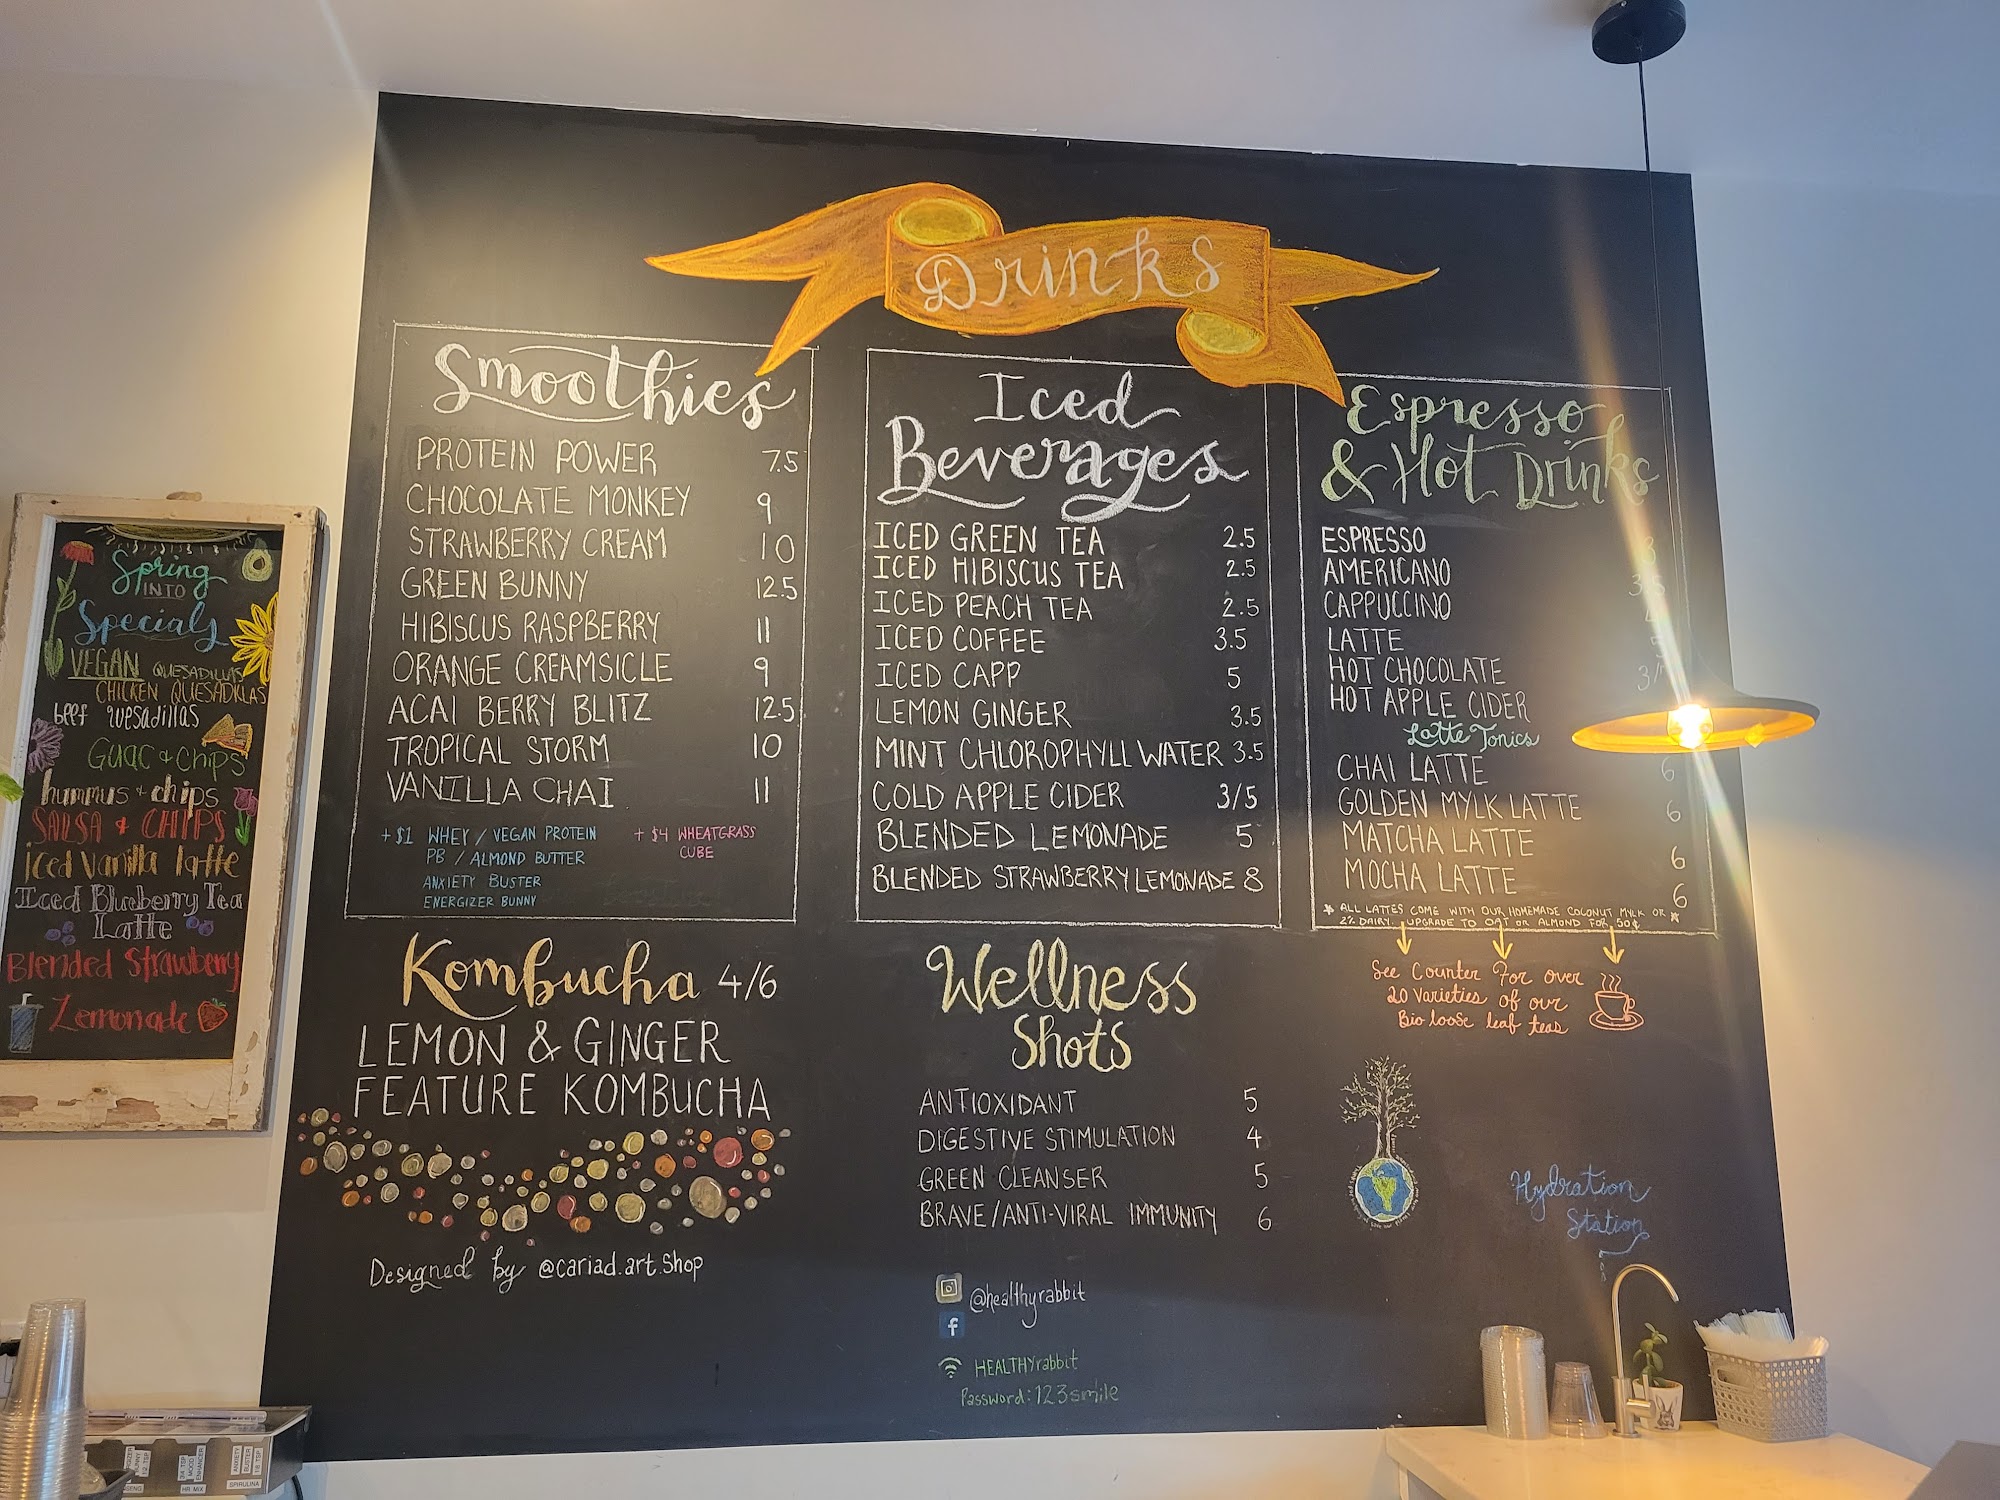 Drinks
Smoothies
PROTEIN POWER 7.5
CHOCOLATE MONKEY 9
STRAWBERRY CREAM 10
GREEN BUNNY 12.5
HIBISCUS RASPBERRY 11
ORANGE CREAMSICLE 9
ACAI BERRY BLITZ 12.5
TROPICAL STORM 10
VANILLA CHAI 11
+ $1 WHEY / VEGAN PROTEIN
PB / ALMOND BUTTER
ANXIETY BUSTER
ENERGIZER BUNNY
+ $4 WHEATGRASS
CUBE
Iced
Beverages
ICED GREEN TEA 2.5
ICED HIBISCUS TEA 2.5
ICED PEACH TEA 2.5
ICED COFFEE 3.5
ICED CAPP 5
LEMON GINGER 3.5
MINT CHLOROPHYLL WATER 3.5
COLD APPLE CIDER 3/5
BLENDED LEMONADE 5
BLENDED STRAWBERRY LEMONADE 8
Espresso
& Hot Drinks
ESPRESSO 3
AMERICANO 3.5
CAPPUCCINO
LATTE 5
HOT CHOCOLATE
HOT APPLE CIDER
Latte Tonics
CHAI LATTE 6
GOLDEN MYLK LATTE 6
MATCHA LATTE 6
MOCHA LATTE 6
* ALL LATTES COME WITH OUR HOMEMADE COCONUT MYLK OR *
2% DAIRY. UPGRADE TO OAT OR ALMOND FOR 50¢
See Counter For over
20 varieties of our
Bio loose leaf teas
Kombucha 4/6
LEMON & GINGER
FEATURE KOMBUCHA
Designed by @cariad.art.shop
Wellness
Shots
ANTIOXIDANT 5
DIGESTIVE STIMULATION 4
GREEN CLEANSER 5
BRAVE/ANTI-VIRAL IMMUNITY 6
@healthyrabbit
f
HEALTHYrabbit
Password: 123smile
Hydration
Station
Spring
INTO
Specials
VEGAN QUESADILLAS
CHICKEN QUESADILLAS
beef quesadillas
Guac + chips
hummus + chips
SALSA + CHIPS
iced vanilla latte
Iced Blueberry Tea
Latte
Blended Strawberry
Lemonade
ANXIETY
BUSTER
1/8 TSP
MOOD
ENHANCER
HR MIX
SPIRULINA